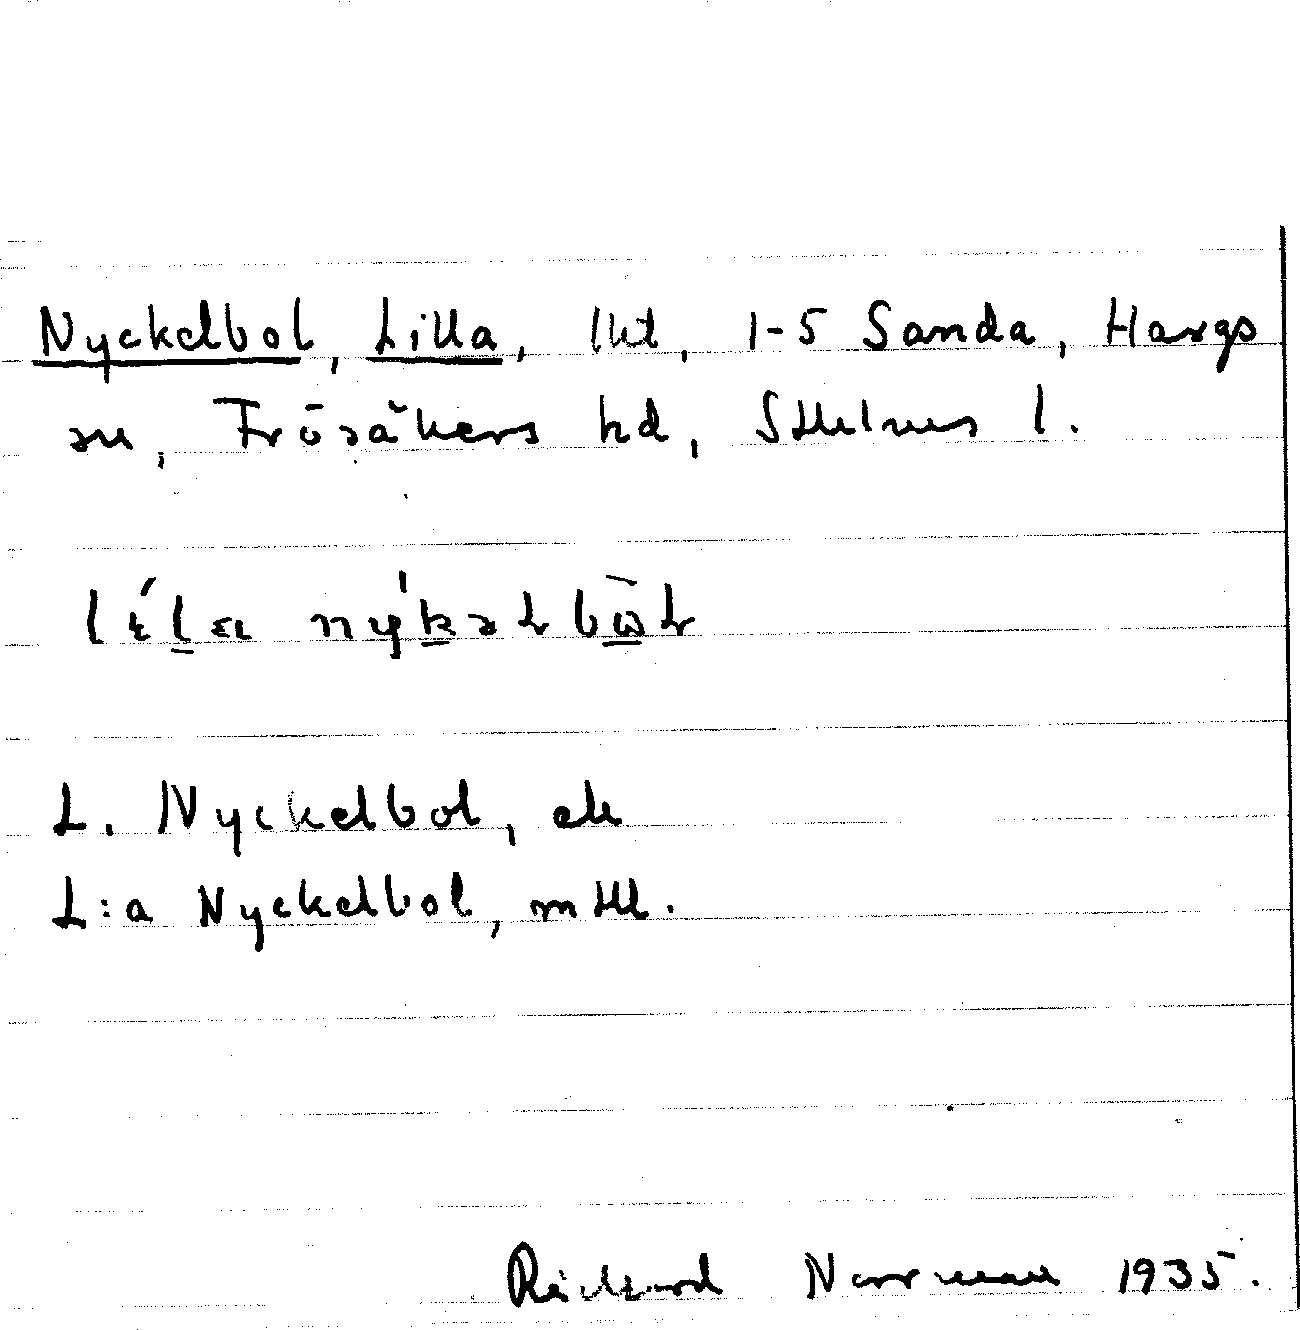 Nyckelbol, Lilla, lht, 1-5 Sanda, Hargs
sn, Frösåkers hd, Sthlms l.
L. Nyckelbol, ek
L:a Nyckelbol, mtl.
Richard Norrman 1935.